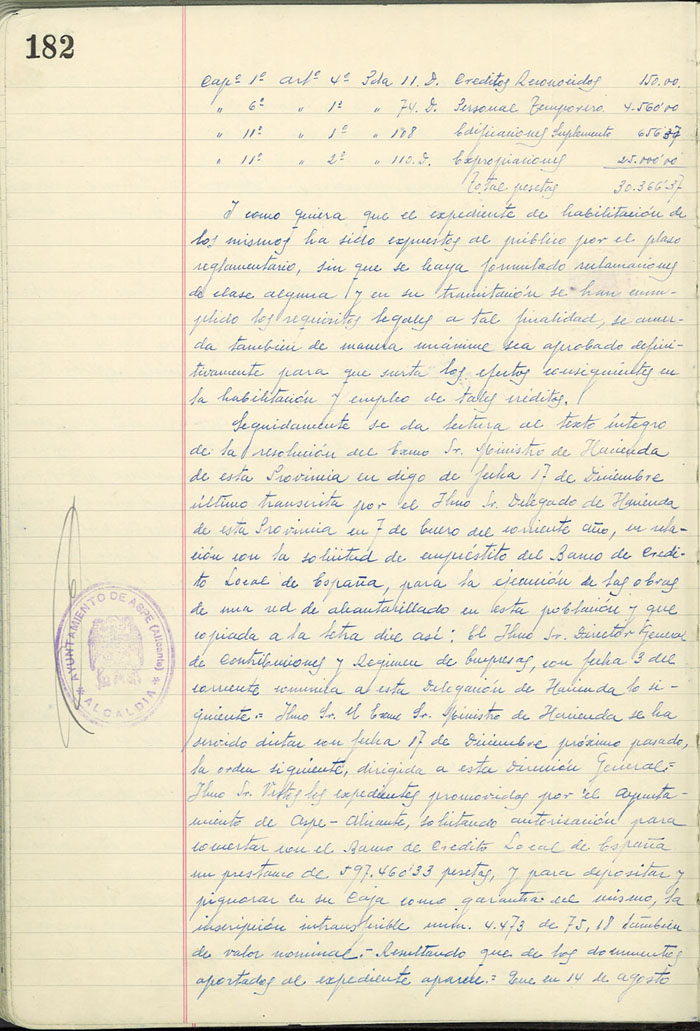 182
Capº 1º artº 4º Pda 11.D. Creditos Reconocidos 150.00.
" 6º " 1º " 74.D. Personal Temporero. 4.560'00
" 11º " 1º " 108 Edificaciones Suplemento 656'37
" 11º " 2º " 110.D. Expropiaciones 25.000'00
Total pesetas 30.366'37
Y como quiera que el expediente de habilitación de
los mismos ha sido expuestos al público por el plazo
reglamentario, sin que se haya formulado reclamaciones
de clase alguna y en su tramitación se han cum-
plido los requisitos legales a tal finalidad, se acuer-
da también de manera unánime sea aprobado defini-
tivamente para que surta los efectos consiguientes en
la habilitación y empleo de tales creditos.
Seguidamente se da lectura al texto íntegro
de la resolución del Exmo Sr. Ministro de Hacienda
de esta Provincia en digo de fecha 17 de Diciembre
último transcrita por el Ilmo Sr. Delegado de Hacienda
de esta Provincia en 7 de Enero del corriente año, en rela-
ción con la solicitud de empréstito del Banco de Credi-
to Local de España, para la ejecución de las obras
de una red de alcantarillado en esta población y que
copiada a la letra dice así: El Ilmo Sr. Director General
de Contribuciones y Regimen de Empresas, con fecha 3 del
corriente comunica a esta Delegación de Hacienda lo si-
guiente.= Ilmo Sr. El Exmo Sr. Ministro de Hacienda se ha
servido dictar con fecha 17 de Diciembre próximo pasado,
la orden siguiente, dirigida a esta Dirección General:=
Ilmo Sr. Vistos los expedientes promovidos por el Ayunta-
miento de Aspe-Alicante, solicitando autorización para
concertar con el Banco de Credito Local de España
un prestamo de 597.460'33 pesetas, y para depositar y
pignorar en su Caja como garantia del mismo, la
inscripción intransferible num. 4.473 de 75,18 también
de valor nominal.- Resultando que de los documentos
aportados al expediente aparece.= Que en 14 de agosto
AYUNTAMIENTO DE ASPE (Alicante)
* ALCALDIA *